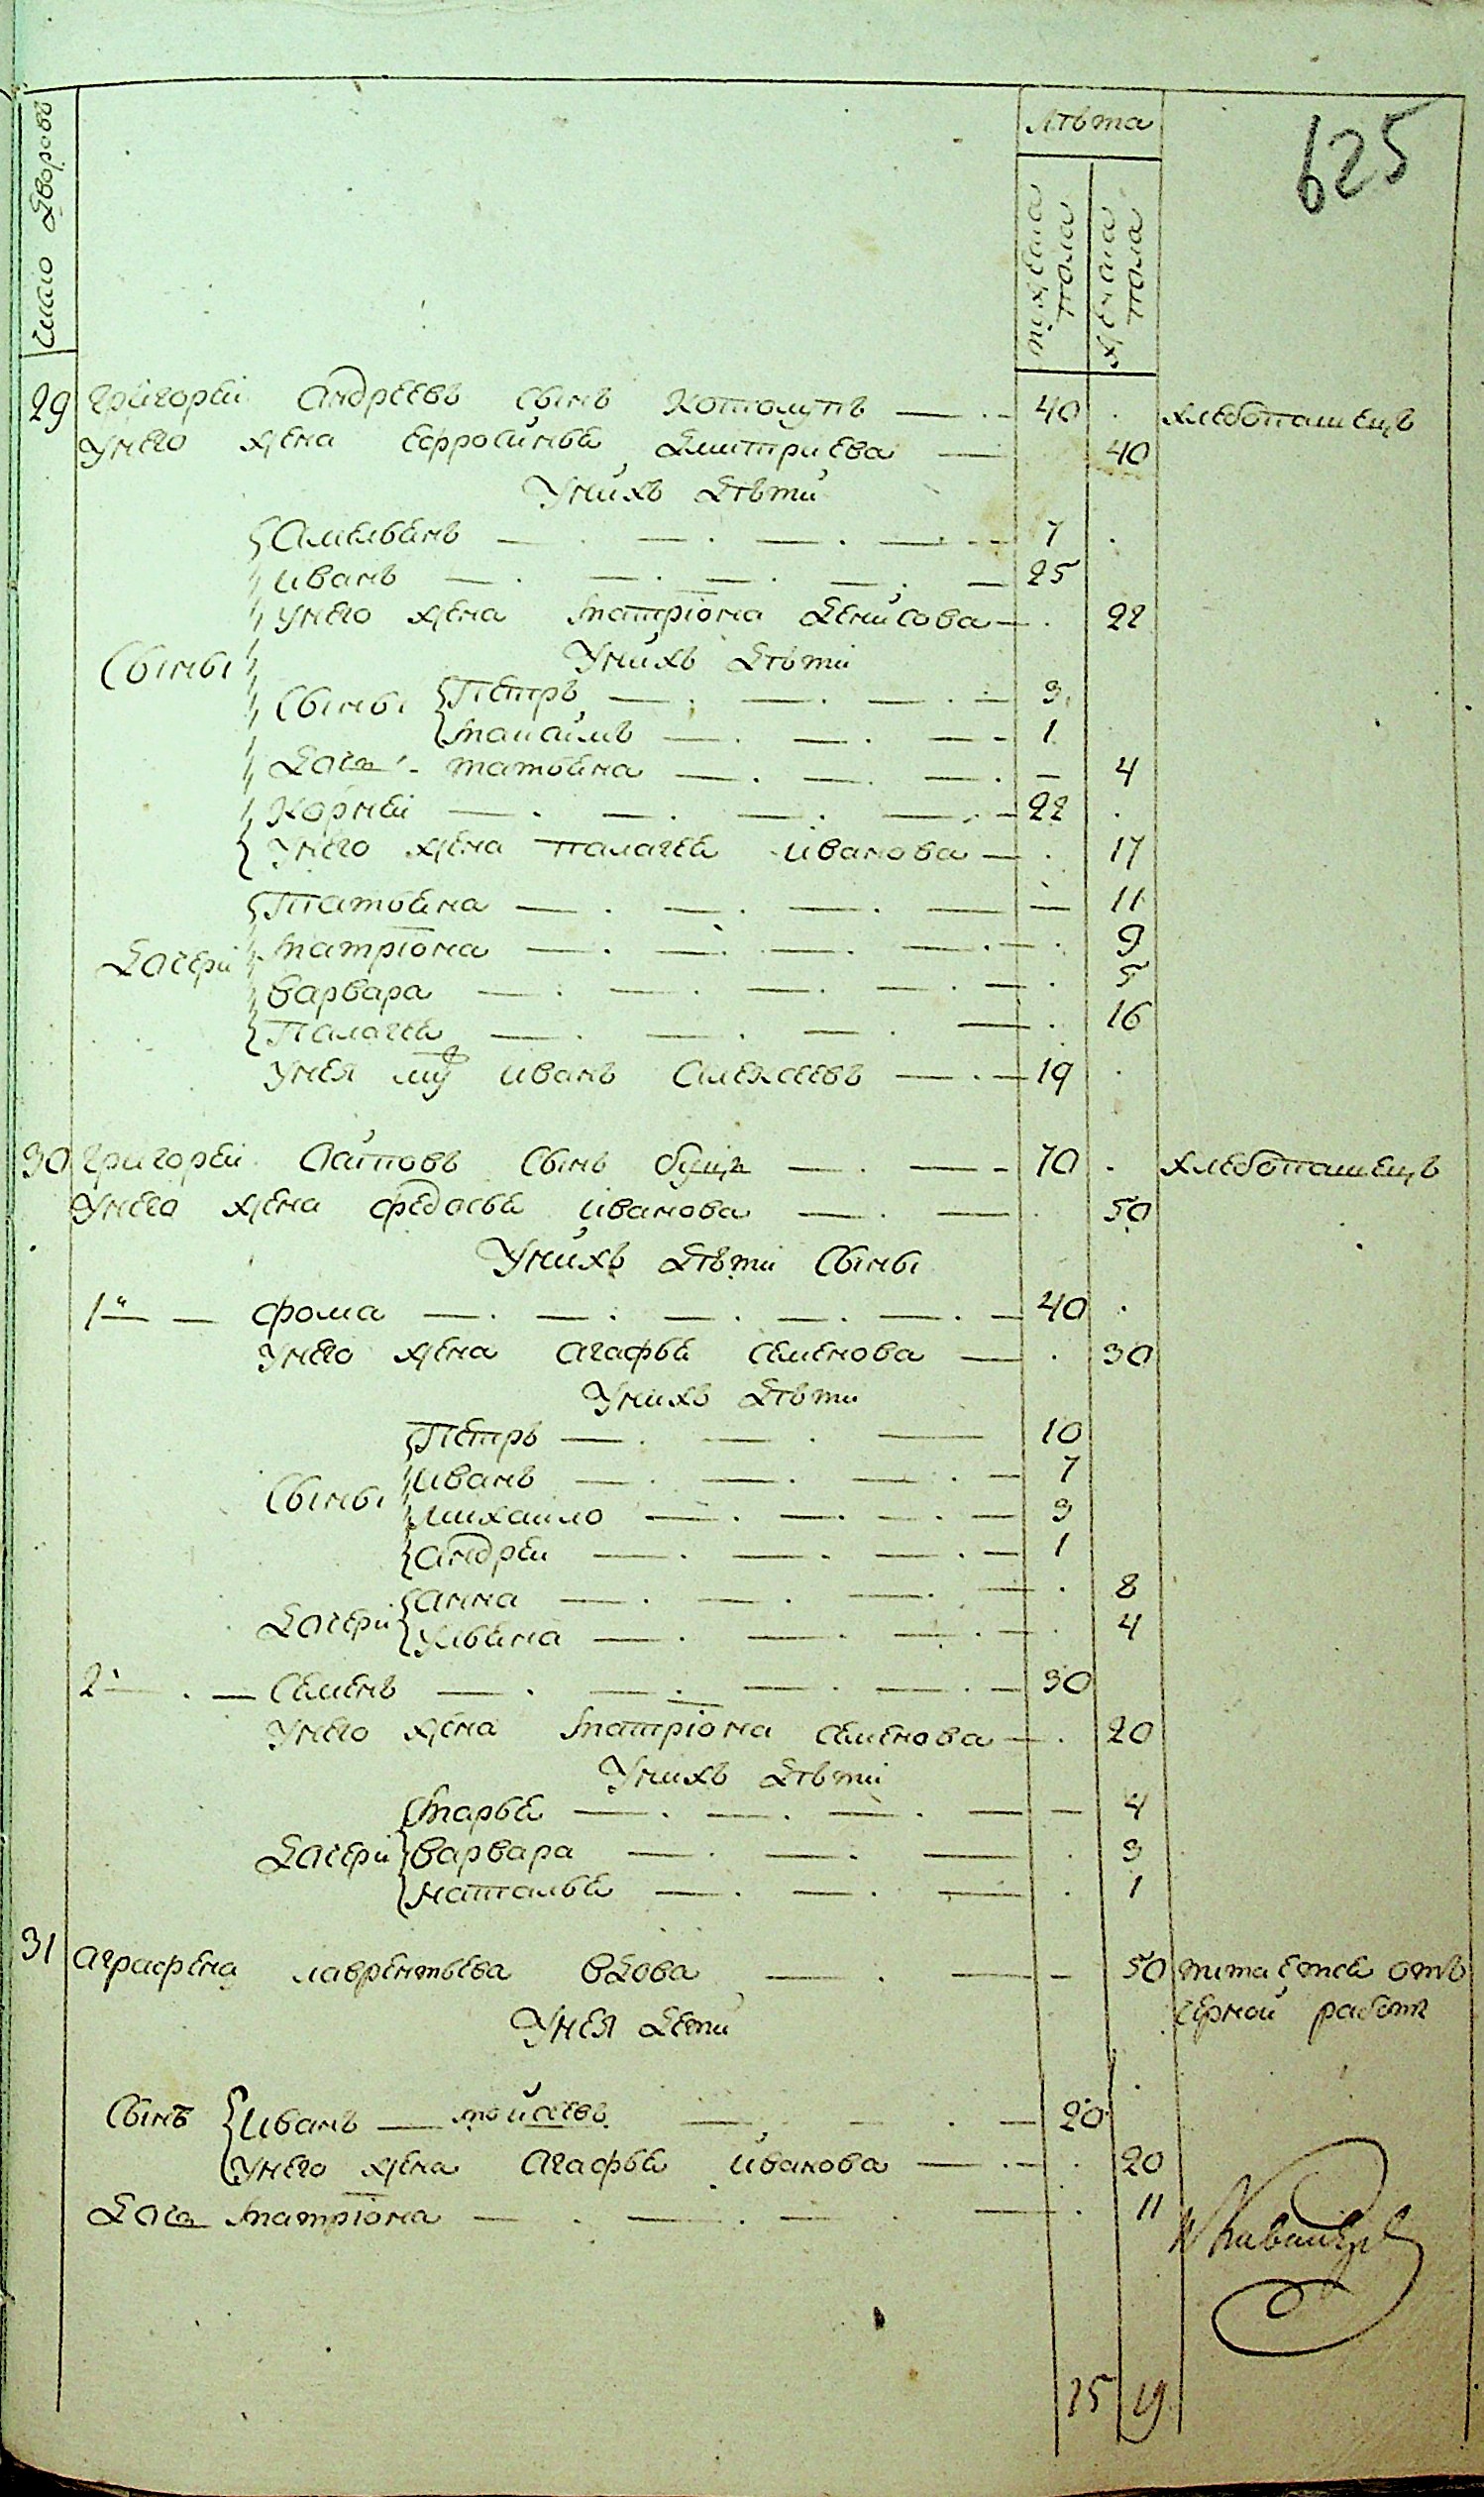 625
Число дворовъ
Лѣта
мужеска пола
женска пола
29 Григорей Андреевъ сынъ Котолупъ 40 хлебопашецъ
У него жена Ефросинья Дмитриева 40
У нихъ дѣти
Сыны
Амельянъ 7
Иванъ 25
У него жена Матріона Денисова 22
У нихъ дѣти
Сыны Петръ 3
Манаилъ 1
Дочь Татьяна 4
Корней 22
У него жена Палагея Иванова 17
Дочери
Татьяна 11
Матріона 9
Варвара 5
Палагея 16
У нея муж Иванъ Алексеевъ 19
30 Григорей Саповъ сынъ 70 хлебопашецъ
У него жена Федосья Иванова 50
У нихъ дѣти сыны
1й Фома 40
У него жена Агафья Семенова 30
У нихъ дѣти
Сыны
Петръ 10
Иванъ 7
Михаило 3
Андрей 1
Дочери
Анна 8
Ульяна 4
2й Семенъ 30
У него жена Матріона Семенова 20
У нихъ дѣти
Дочери
Марья 4
Варвара 3
Наталья 1
31 Аграфена Лаврентьева вдова 50 питается отъ
черной работы
У нея дети
Сынъ Иванъ Мойсеевъ 20
У него жена Агафья Иванова 20
Дочь Матріона 11
15 19